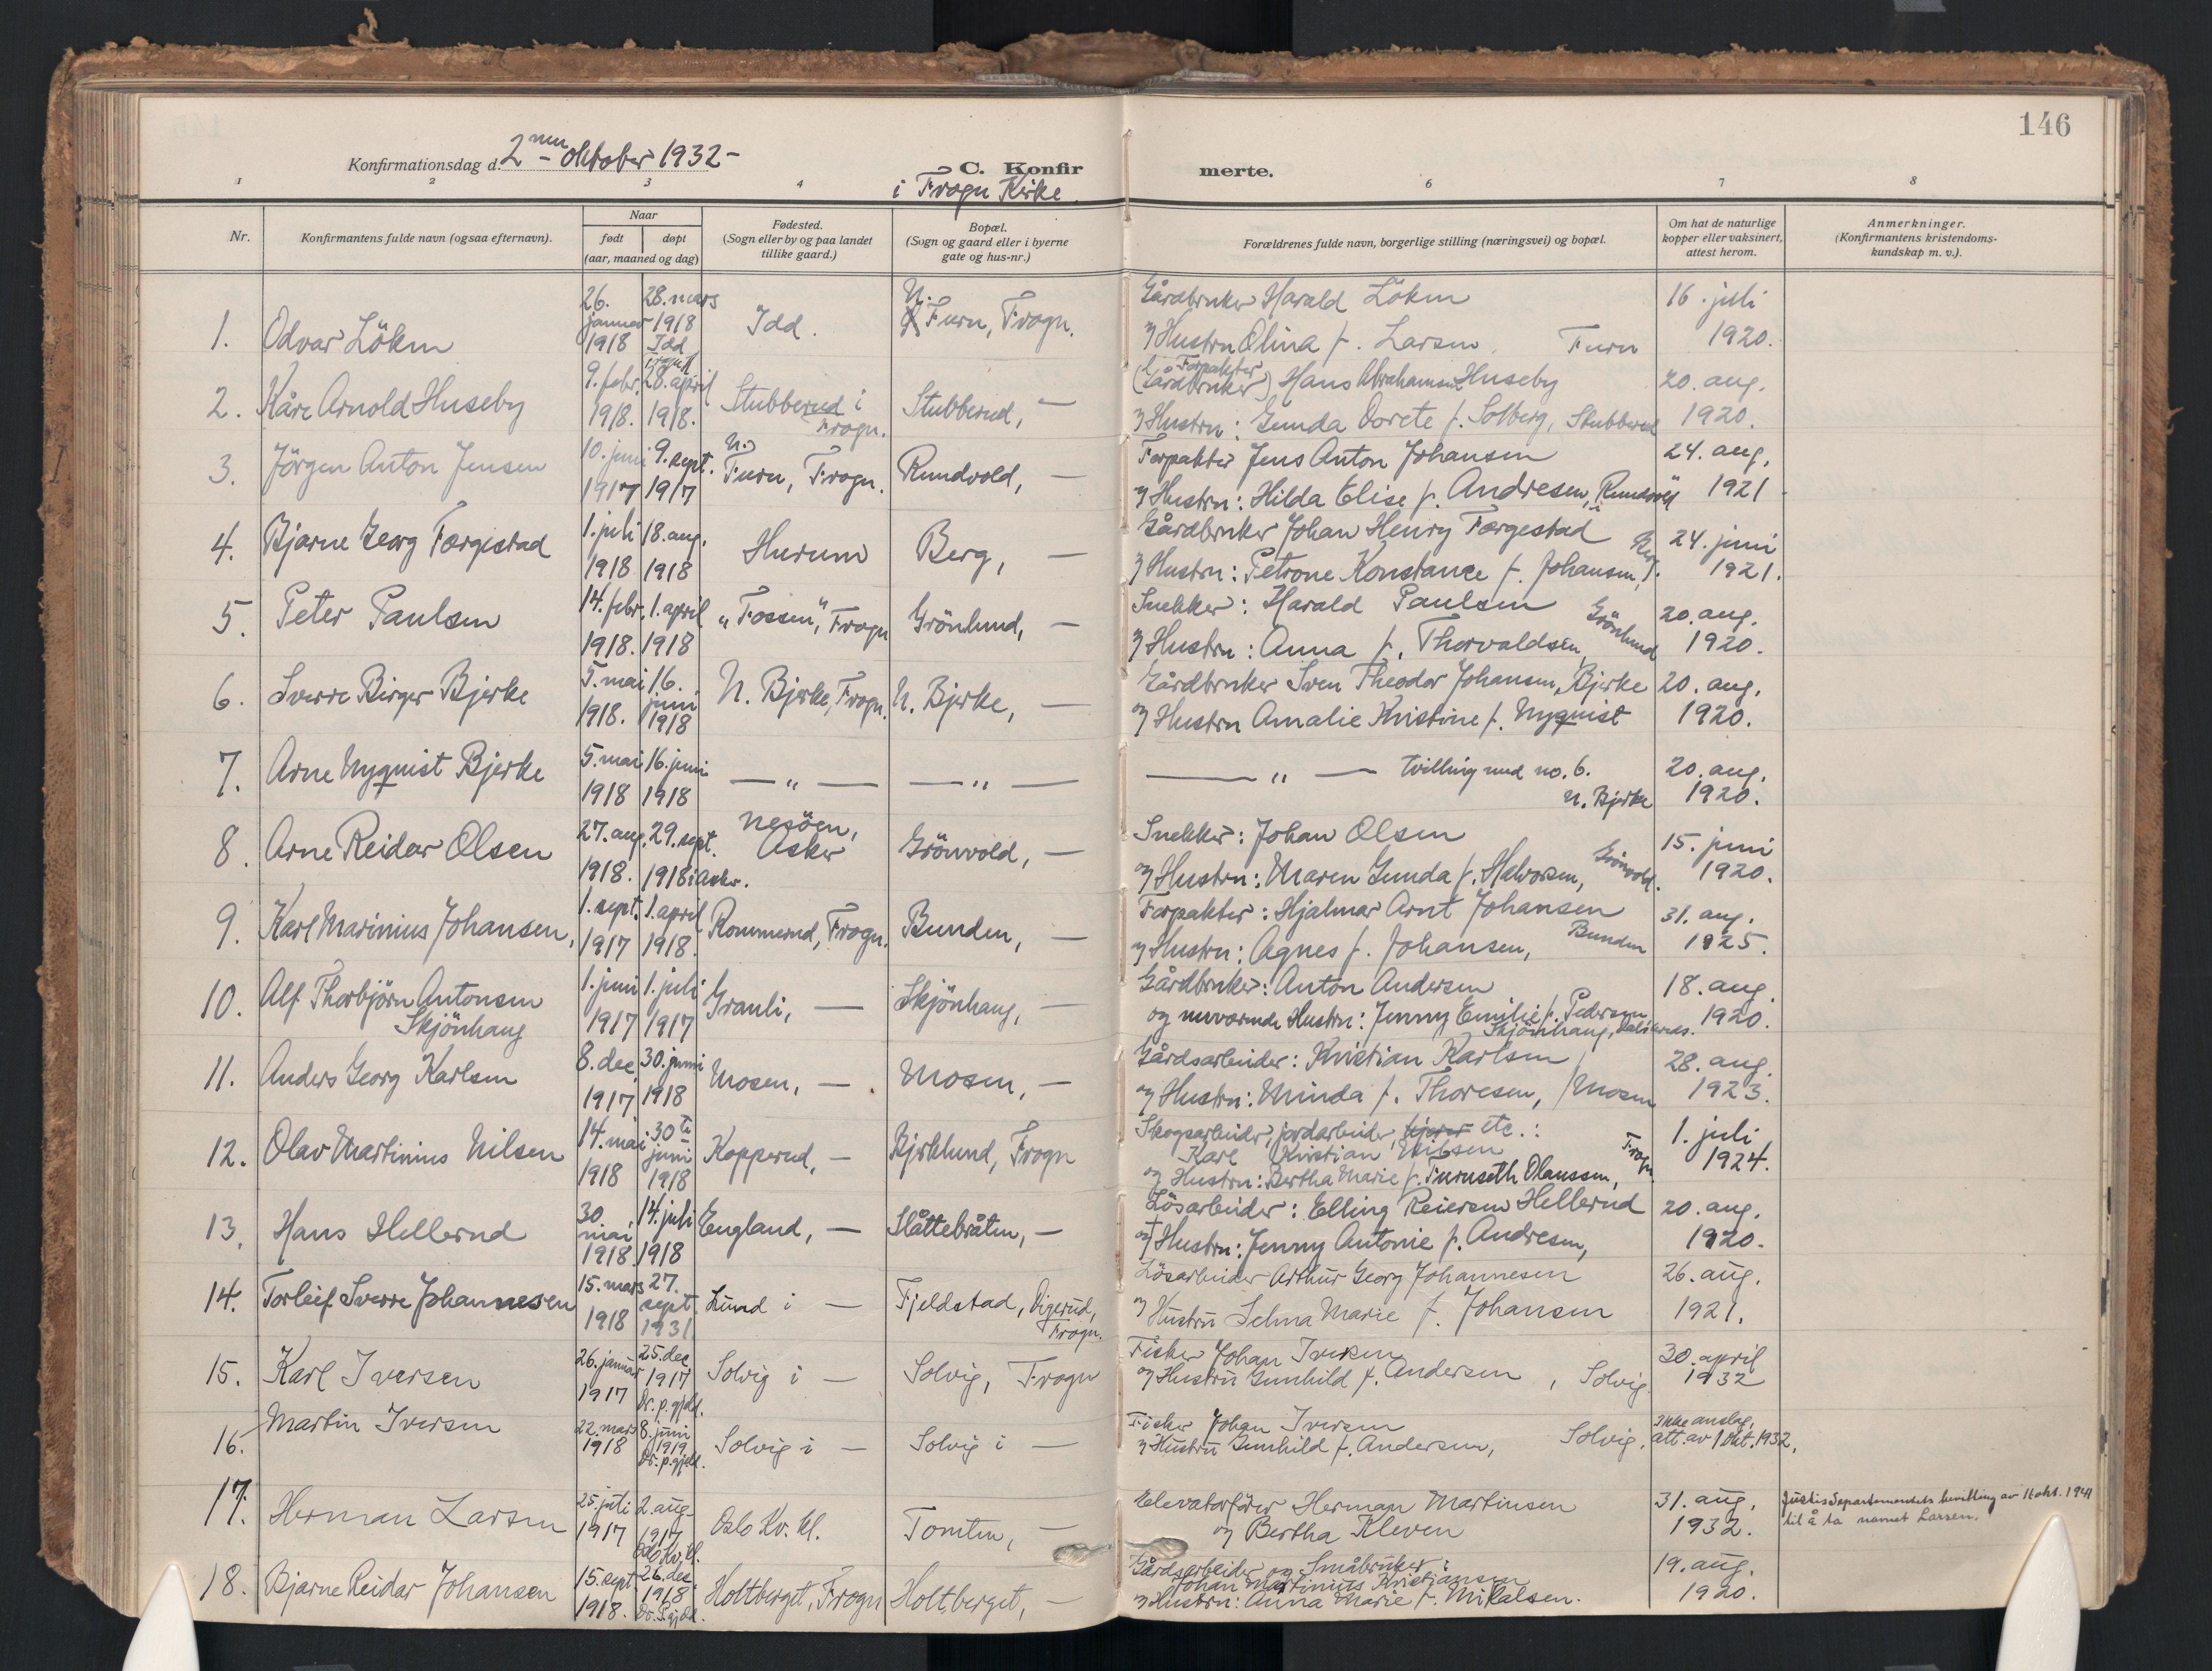 146
Konfirmationsdag d. 2 nen oktober 1932-
C. Konfir merte.
i Frogn Kirke.
1 2 3 4 6 7 8
Nr.
Konfirmantens fulde navn (ogsaa efternavn).
Naar
født døpt
(aar, maaned og dag)
Fødested.
(Sogn eller by og paa landet
tillike gaard.)
Bopæl.
(Sogn og gaard eller i byerne
gate og hus-nr.)
Forældrenes fulde navn, borgerlige stilling (næringsvei) og bopæl.
Om hat de naturlige
kopper eller vaksinert,
attest herom.
Anmerkninger.
(Konfirmantens kristendoms-
kundskap m. v.).
1. Odvar Löken 26. januar 1918 28. mars 1918 Idd Idd. N. Furu, Frogn. Gårdbruker Harald Löken
og Hustru Olina f. Larsen, Furu 16. juli 1920.
2. Kåre Arnold Huseby 9. febr. 1918. 28. april 1918. Stubberud i Frogn. Stubberud, — (Gårdbruker) Forpakter Hans Abrahamsen Huseby
og Hustru: Gunda Dorete f. Solberg, Stubberud 20. aug. 1920.
3. Jörgen Anton Jensen 10. juni 1917 9. sept. 1917 N. Furu, Frogn. Rundvold, — Forpakter Jens Anton Johansen
og Hustru: Hilda Elise f. Andresen, Rundvold 24. aug. 1921
4. Bjarne Georg Færgestad 1. juli 1918 18. aug. 1918 Hurum Berg, — Gårdbruker Johan Henry Færgestad
og Hustru: Petrone Konstanse f. Johansen, Berg. 24. juni 1921.
5. Peter Paulsen 14. febr. 1918. 1. april 1918 "Fossen", Frogn Grönlund, — Snekker: Harald Paulsen
og Hustru: Anna f. Thorvaldsen, Grönlund 20. aug. 1920.
6. Sverre Birger Bjerke 5. mai 1918. 16. juni 1918 N. Bjerke, Frogn. N. Bjerke, — Gårdbruker Sven Theodor Johansen, Bjerke
og Hustru Amalie Kristine f. Nyquist 20. aug. 1920.
7. Arne Nyquist Bjerke 5. mai 1918 16. juni 1918 — " — — " — — " — Tvilling med no. 6.
N. Bjerke 20. aug. 1920.
8. Arne Reidar Olsen 27. aug. 1918. 29. sept. 1918 i Asker. Nesöen, Asker Grönvold, — Snekker: Johan Olsen
og Hustru: Maren Gunda f. Halvorsen, Grönvold. 15. juni 1920.
9. Karl Marinius Johansen, 1. sept. 1917 1. april 1918. Rommerud, Frogn. Bunden, — Forpakter: Hjalmar Arnt Johansen
og Hustru: Agnes f. Johansen, Bunden 31. aug. 1925.
10. Alf Thorbjörn Antonsen Skjönhaug 1. juni 1917 1. juli 1917 Granli, — Skjönhaug, — Gårdbruker: Anton Andersen
og nuværende Hustru: Jenny Emilie f. Pedersen
Skjönhaug, 18. aug. 1920.
11. Anders Georg Karlsen 8. dec. 1917 30. juni 1918 Mosen, — Mosen, — Gårdsarbeider: Kristian Karlsen
og Hustru: Minda f. Thoresen, Mosen 28. aug. 1923.
12. Olav Martinius Nilsen 14. mai 1918 30te juni 1918 Kopperud, — Bjerklund, Frogn Skogsarbeider, jordarbeider, etc.:
Karl Kristian Nilsen
og Hustru: Bertha Marie f. Furuseth Olaussen, Frogn 1. juli 1924.
13. Hans Hellerud 30. mai 1918 14. juli 1918 England, — Slåttebråten, — Lösarbeider: Elling Reiersen Hellerud
og Hustru: Jenny Antonie f. Andresen, 20. aug. 1920.
14. Torleif Sverre Johannesen 15. mars 1918 27. sept 1931 Lund i — Fjeldstad, Digerud, Frogn. Lösarbeider Arthur Georg Johannesen
og Hustru Selma Marie f. Johansen 26. aug. 1921.
15. Karl Iversen 26. januar 1917 25. dec 1917 Dr. p. gjeld. Solvig i — Solvig, Frogn Fisker Johan Iversen
og Hustru Gunhild f. Andersen, Solvig. 30. april 1932
16. Martin Iversen 22. mars 1918 8. juni 1919 Dr. p. gjeld. Solvig i — Solvig i — Fisker Johan Iversen
og Hustru Gunhild f. Andersen, Solvig. ikke anslag, att. av 1 okt. 1932.
17. Herman Larsen 25. juli 1917 2. aug. 1917 Oslo Kv. kl. Oslo Kv. kl. Tomten, — Elevatorförer Herman Martinsen
og Bertha Kleven 31. aug. 1932. Justisdepartementets bevilling av 11 okt. 1941
til å ta navnet Larsen.
18. Bjarne Reidar Johansen 15. sept 1918. 26. dec. 1918 Dr. P. gjeld. Holtberget, Frogn Holtberget, — Gårdsarbeider og Småbruker:
Johan Martinius Kristiansen
og Hustru: Anna Marie f. Mikalsen. 19. aug. 1920.